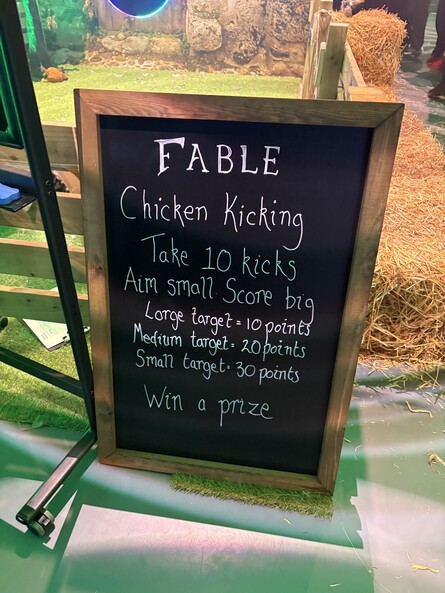 FABLE
Chicken Kicking
Take 10 kicks
Aim small Score big
Large target = 10 points
Medium target = 20 points
Small target = 30 points
Win a prize